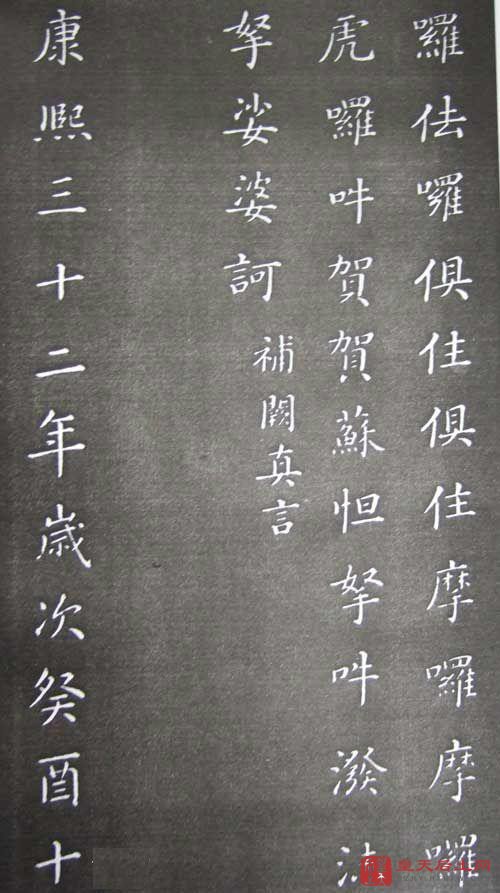 羅佉囉俱住俱住摩囉摩囉
虎囉吽賀賀蘇怛拏吽潑沫
拏娑婆訶
補闕真言
康熙三十二年歲次癸酉十